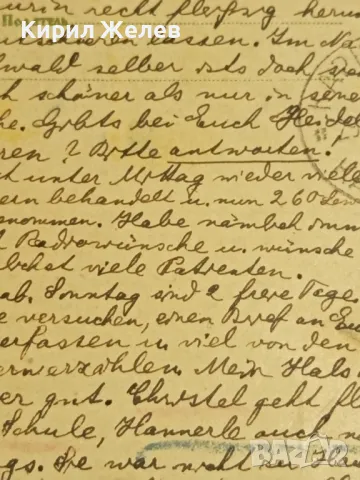 Кирил Желев
recht fleißig herum
lassen. Im Na
wald selber ists doch
schöner als nur in seine
Gibts bei Euch Heidel
ren? Bitte antworten.
unter Mittag wieder viele
ern behandelt u. nun 260
genommen. Habe nämlich imm
Radiowünsche u. wünsche
viele Patienten.
ab. Sonntag sind 2 freie Tage
e versuchen, einen Brief an Eu
erfassen u. viel von den
ern erzählen. Mein Hals
er gut. Christel geht fl
Schule, Hannerle auch n
ngs. Sie war nicht zu Hau
BAZAR